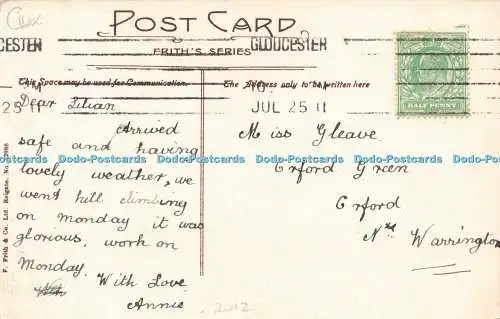 POST CARD
FRITH'S SERIES
CESTER
GLOUCESTER
This Space may be used for Communication.
The Address only to be written here
25 11
JUL 25 11
HALF PENNY
Dear Lilian
Arrived
safe and having
lovely weather, we
went hill climbing
on Monday it was
glorious, work on
Monday.
With Love
Annie
Miss Gleave
Orford Green
Orford
Nr Warrington
F. Frith & Co., Ltd. Reigate.
2012
Dodo-Postcards Dodo-Postcards Dodo-Postcards Dodo-Postcards